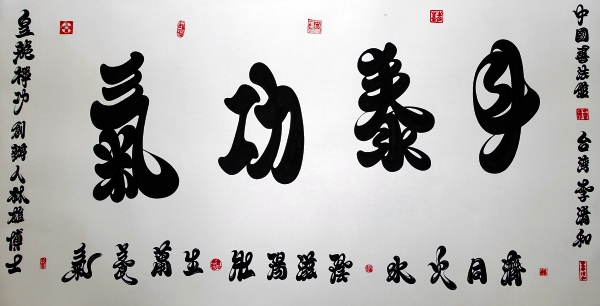 皇龍禪功創辦人林雄博士
氣功泰斗
氣養萬生 壯陽滋陰 水火同濟
中國書法 台灣李清和